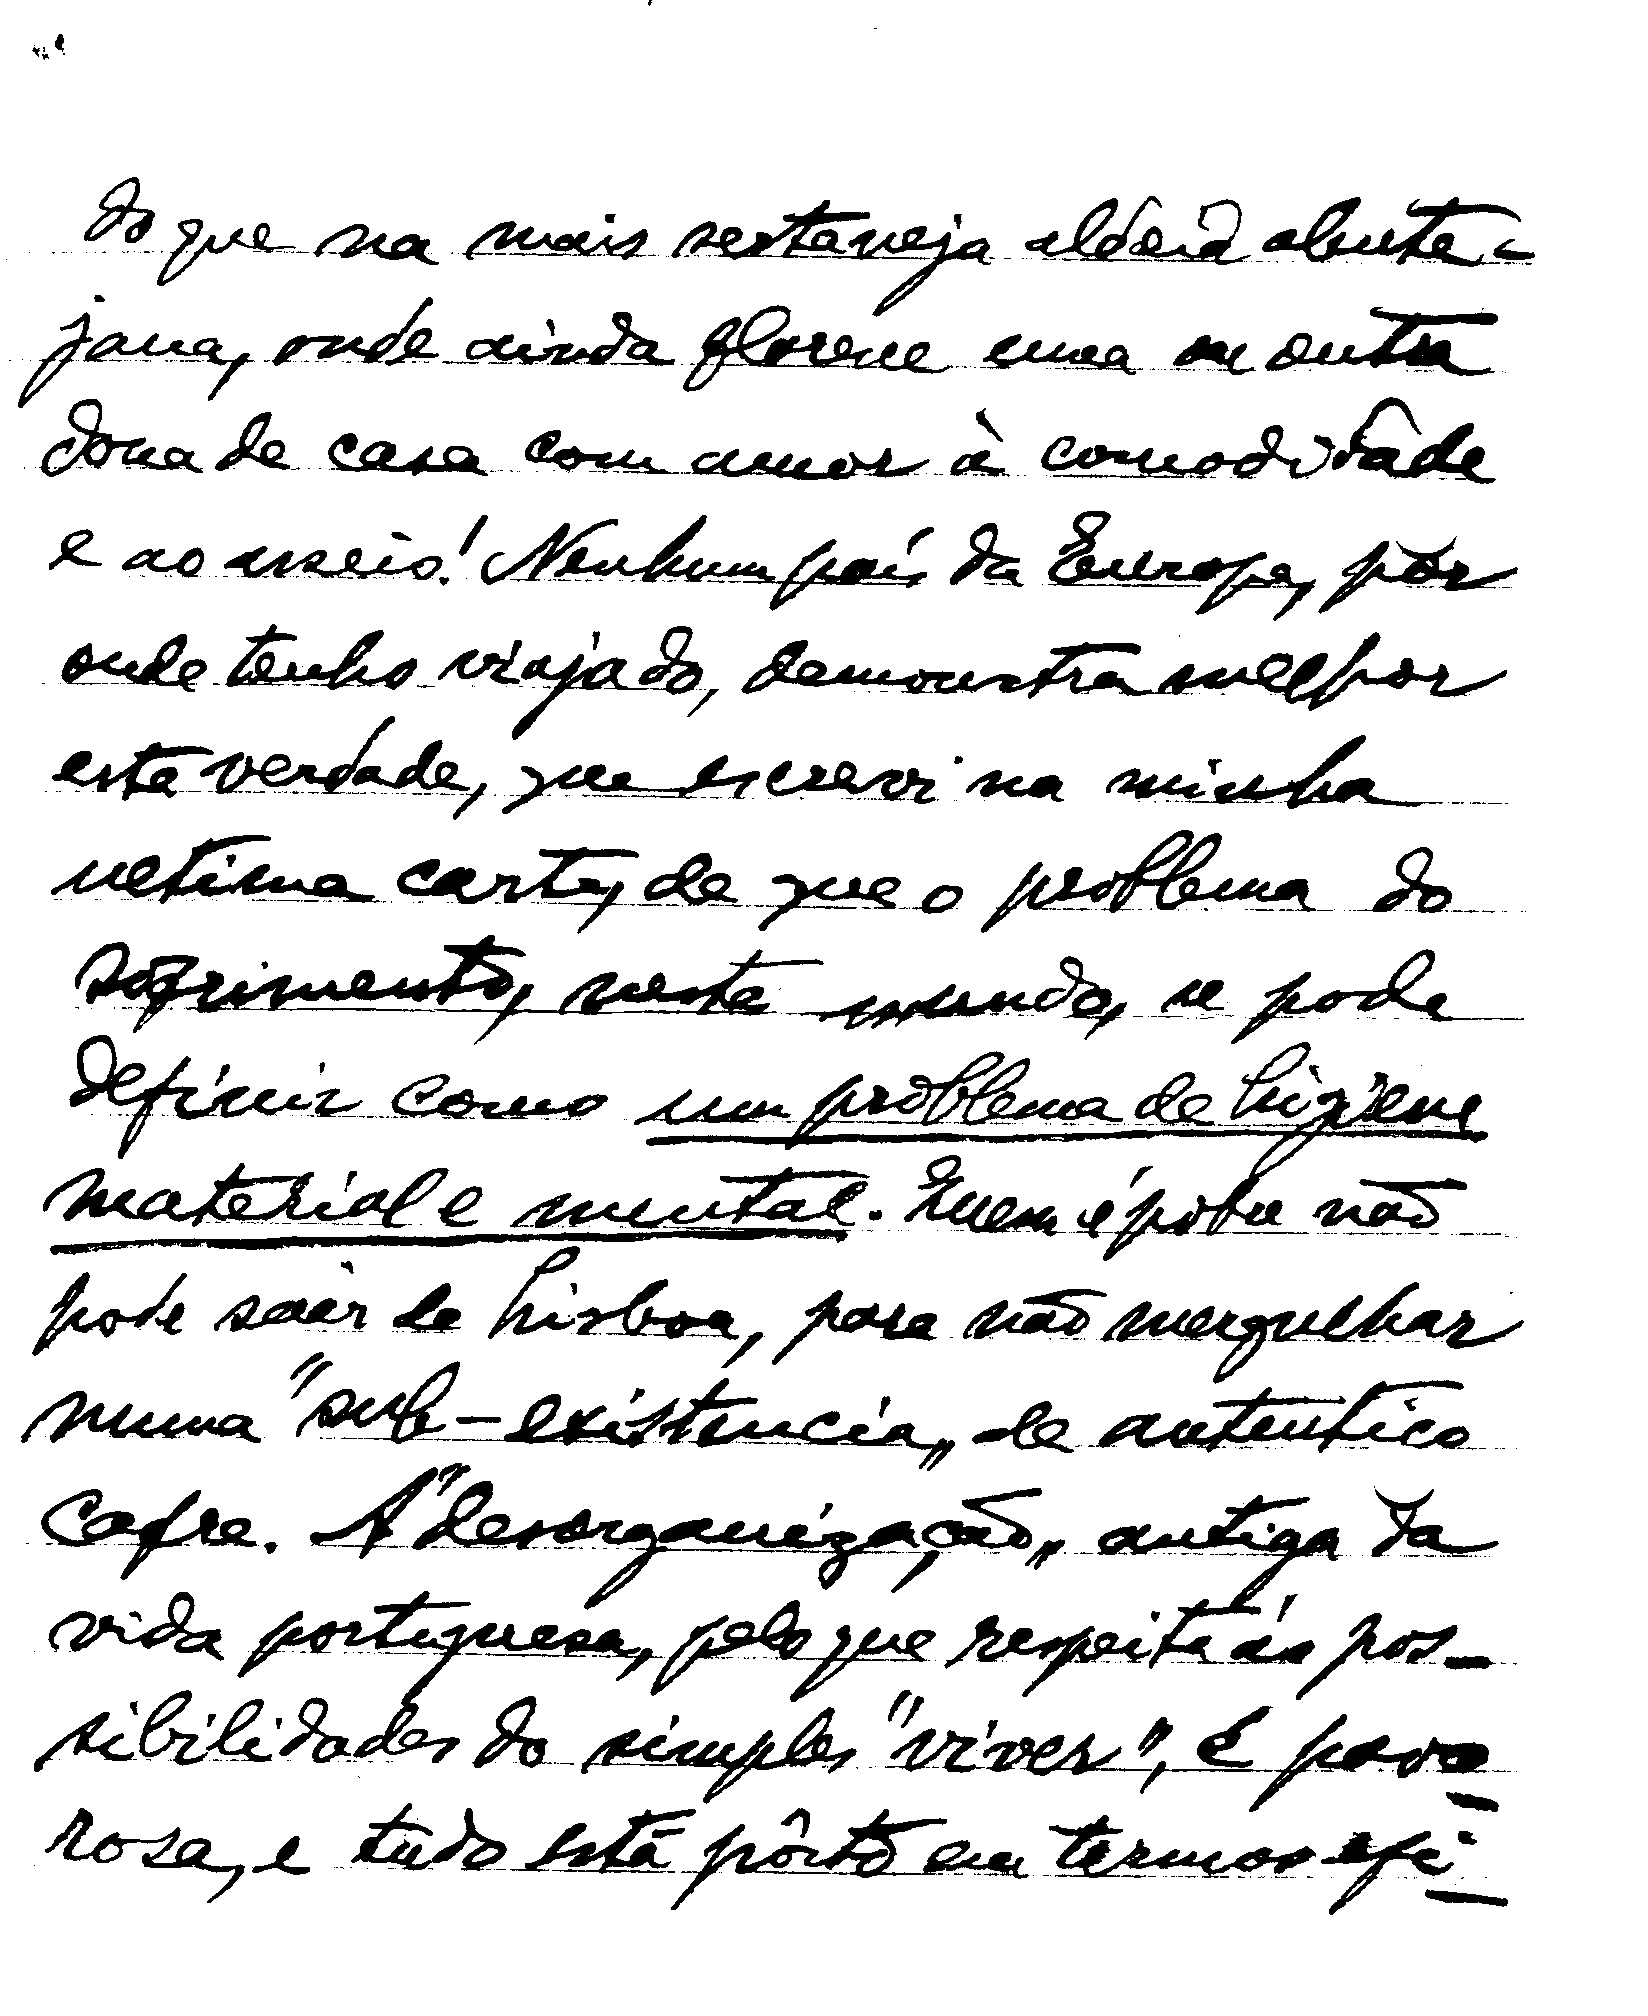 do que na mais sertaneja aldeia alente-
jana, onde ainda floresce uma ou outra
dona de casa com amor à comodidade
e ao asseio! Nenhum país da Europa, por
onde tenho viajado, demonstra melhor
esta verdade, que escrevi na minha
ultima carta, de que o problema do
sofrimento, neste mundo, se pode
definir como um problema de higiene
material e mental. Quem é pobre não
pode sair de Lisboa, para não mergulhar
numa "sub-existencia" de autentico
Cafre. A "desorganização" antiga da
vida portuguesa, pelo que respeita ás pos-
sibilidades do simples "viver", é pavo-
rosa, e tudo está pôsto em termos